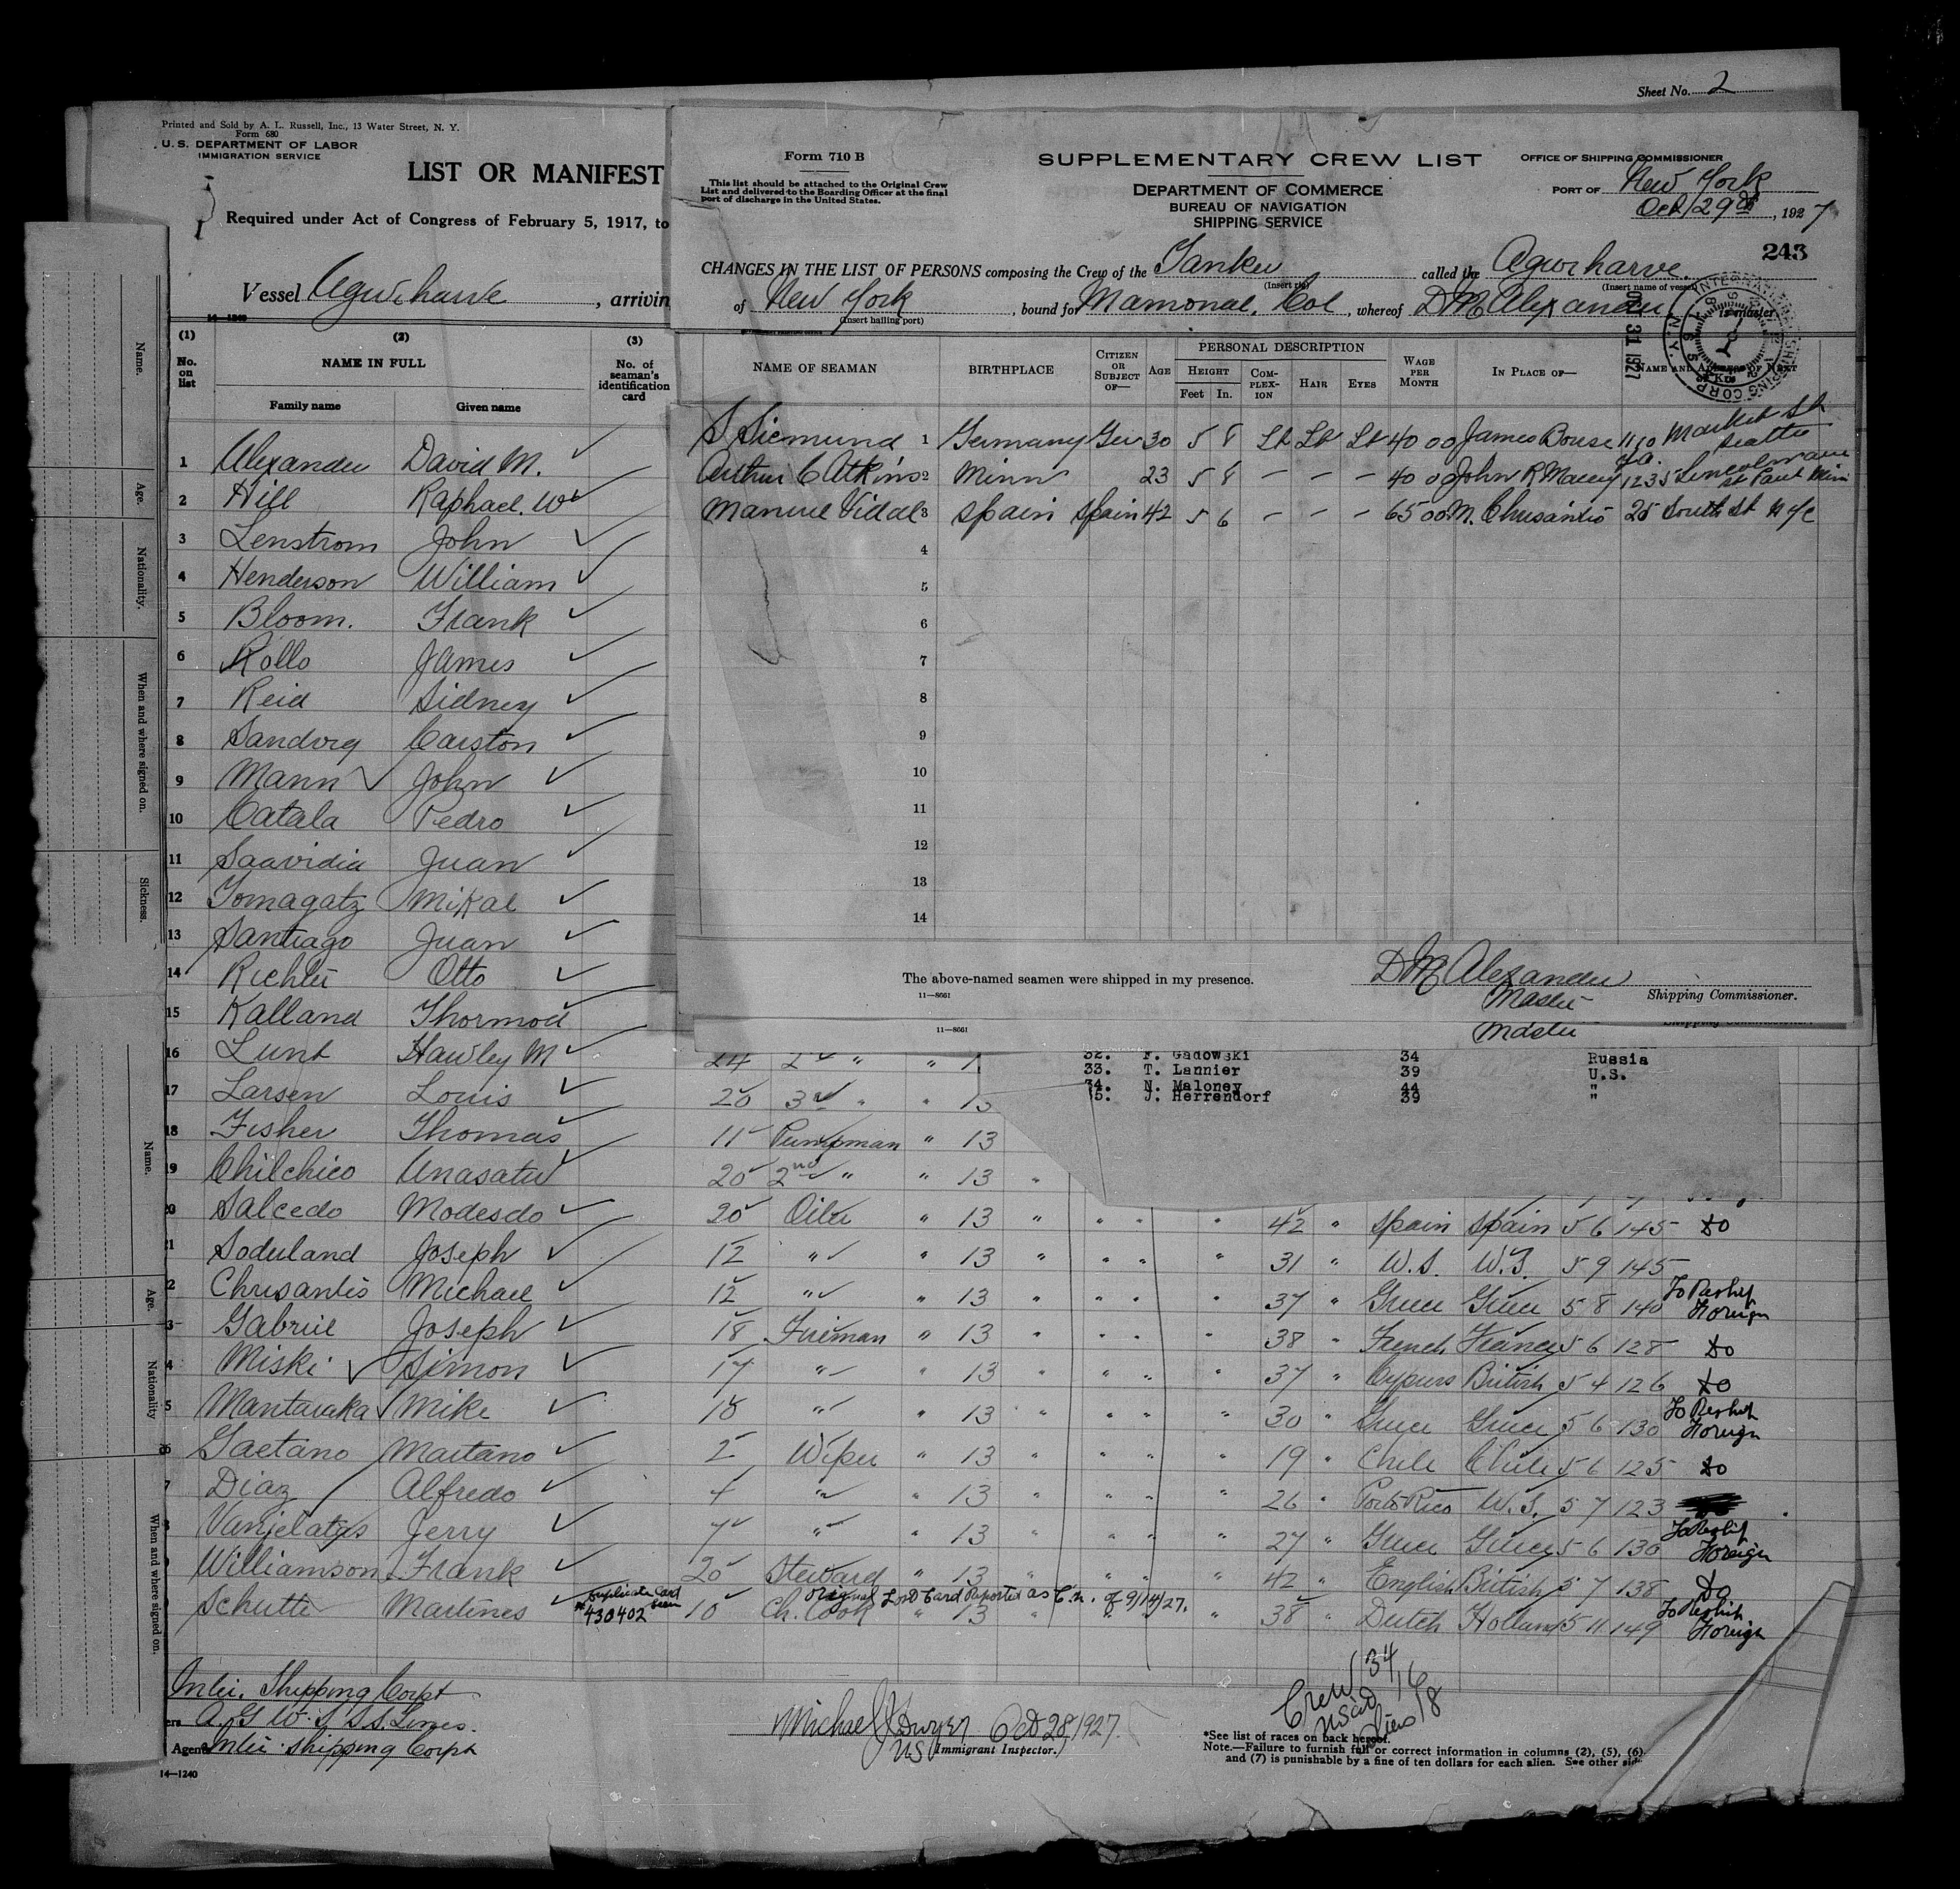 Sheet No. 2
Printed and Sold by A. L. Russell, Inc., 13 Water Street, N. Y.
Form 680
U. S. DEPARTMENT OF LABOR
IMMIGRATION SERVICE
LIST OR MANIFEST
Required under Act of Congress of February 5, 1917, to
Vessel Agwiharve, arrivin
(1) (2) (3)
No. on list
NAME IN FULL
No. of seaman's identification card
Family name Given name
1 Alexander David M.
2 Hill Raphael. W
3 Lenstrom John
4 Henderson William
5 Bloom. Frank
6 Rollo James
7 Reid Sidney
8 Sandvig Carston
9 Mann John
10 Catala Pedro
11 Saavidia Juan
12 Tomagatz Mikal
13 Santiago Juan
14 Richter Otto
15 Kalland Thormod
16 Lunt Hawley M 24 2 " "
17 Larsen Louis 20 3rd " "
18 Fisher Thomas 11 Pumpman " 13
19 Chilchico Anasatu 20 2nd " " 13 "
20 Salcedo Modesdo 20 Oiler " 13 " " " " 42 " Spain Spain 5 6 145 do
21 Soduland Joseph 12 " " 13 " " " " 31 " U.S. U.S. 5 9 145
2 Chrisantis Michael 12 " " 13 " " " " 37 " Greece Greece 5 8 140 To Reship Foreign
3 Gabriel Joseph 18 Fireman " 13 " " " " 38 " French France 5 6 128 do
4 Miski Simon 17 " " 13 " " " " 37 " Cypurs British 5 4 126 do
5 Mantaraka Mike 18 " " 13 " " " " 30 " Greece Greece 5 6 130 To Reship Foreign
26 Gaetano Maitano 2 Wiper " 13 " " " " 19 " Chile Chile 5 6 125 do
7 Diaz Alfredo 4 " " 13 " " " " 26 " Porto Rico U.S. 5 7 123
Vanjelatys Jerry 7 " " 13 " " " " 27 " Greece Greece 5 6 130 To Reship Foreign
Williamson Frank 20 Steward " 13 " " " " 42 " English British 5 7 138 Do
Duplicate Card seen
Original Lost Card Reported as C.n. of 9/14/27.
Schutte Martines #430402 10 Ch. Cook " 13 " 38 " Dutch Holland 5 11 149 To Reship Foreign
Inter. Shipping Corpt
A. G. W. I. S.S. Lines.
Agents Inter. Shipping Corpt
14—1240
Michael J Dwyer Oct 28, 1927
US Immigrant Inspector.
Crew 34
USCit 16
Aliens 18
*See list of races on back hereof.
Note.—Failure to furnish full or correct information in columns (2), (5), (6)
and (7) is punishable by a fine of ten dollars for each alien. See other side
Form 710 B
This list should be attached to the Original Crew
List and delivered to the Boarding Officer at the final
port of discharge in the United States.
SUPPLEMENTARY CREW LIST
DEPARTMENT OF COMMERCE
BUREAU OF NAVIGATION
SHIPPING SERVICE
OFFICE OF SHIPPING COMMISSIONER
PORT OF New York
Oct 29th, 1927
243
CHANGES IN THE LIST OF PERSONS composing the Crew of the Tanker called the Agwiharve.
(Insert rig) (Insert name of vessel)
of New York, bound for Mamonal, Col, whereof D M Alexander is master
(Insert hailing port)
OCT 31 1927
NAME OF SEAMAN BIRTHPLACE CITIZEN OR SUBJECT OF— AGE PERSONAL DESCRIPTION WAGE PER MONTH IN PLACE OF— NAME AND ADDRESS OF NEXT
HEIGHT COMPLEXION HAIR EYES
Feet In.
S Siemund 1 Germany Ger 30 5 8 Lt Lt Lt 40 00 James Bouse 1110 Market St Seattle
Arthur C Atkins 2 Minn 23 5 8 – – – 40 00 John R Macey 1235 Lincoln ave St Paul Minn
Manuel Vidal 3 Spain Spain 42 5 6 – – – 65 00 M. Chrisantis 25 South St N Y C
4
5
6
7
8
9
10
11
12
13
14
The above-named seamen were shipped in my presence.
D M Alexander
Master
Shipping Commissioner.
11—8661
11—8661
Master
32. F. Gadowski 34 Russia
33. T. Lannier 39 U.S.
34. N. Maloney 44 "
35. J. Herrendorf 39 "
Name.
Age.
Nationality.
When and where signed on.
Sickness.
Name.
Age.
Nationality
When and where signed on.